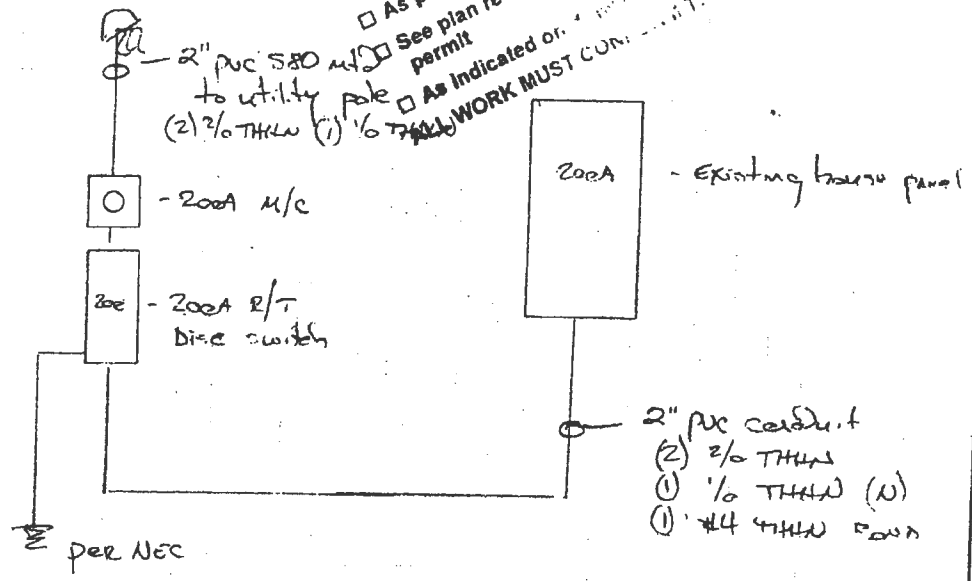 □ As
□ See plan
permit
□ As Indicated or
ALL WORK MUST
2" PVC S80 mt'd
to utility pole
(2) 2/0 THHN (1) 1/0 THHN
- 200A M/C
200
- 200A R/T
Disc switch
200A
- Existing house panel
2" PVC conduit
(2) 2/0 THHN
(1) 1/0 THHN (N)
(1) #4 THHN BOND
per NEC